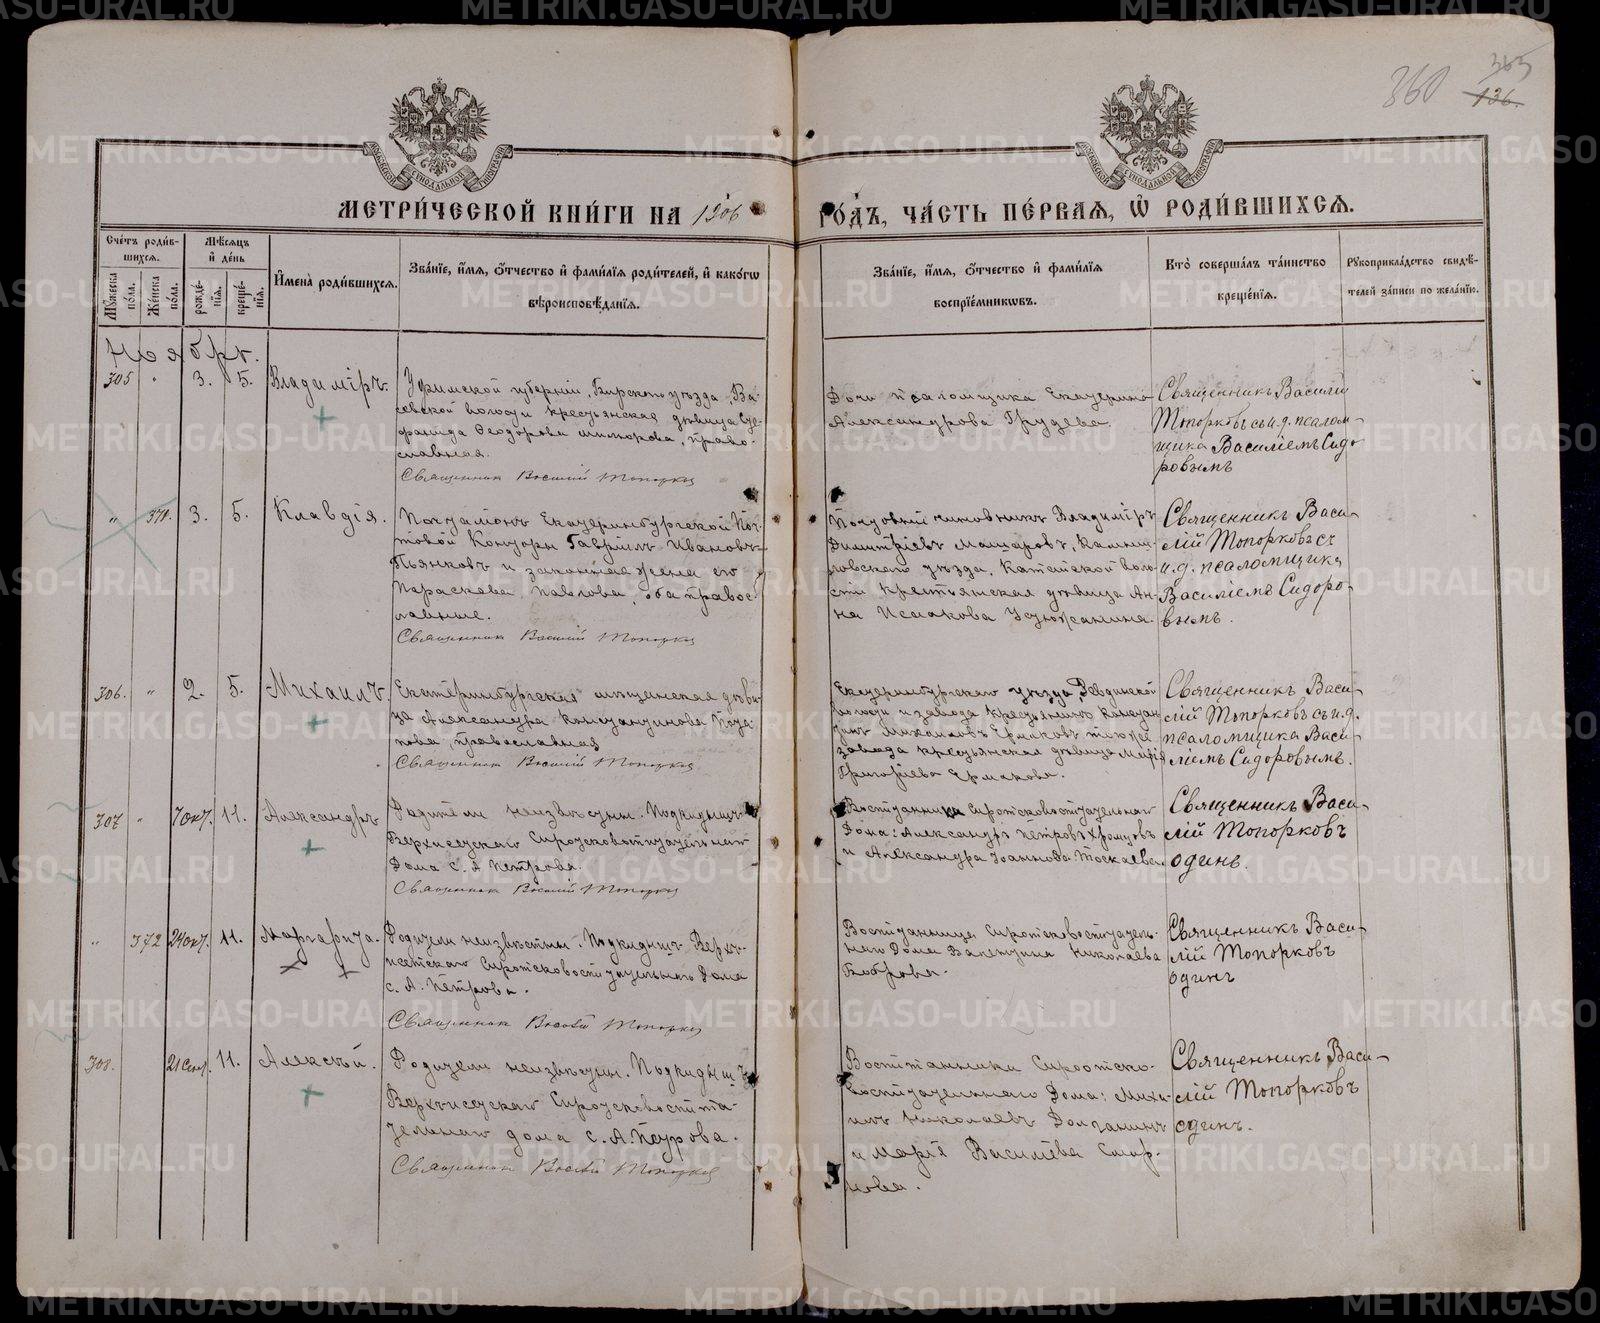 360
365
136.
МЕТРИ́ЧЕСКОЙ КНИ́ГИ НА 1906
ГО́ДЪ, ЧА́СТЬ ПЕ́РВАЯ, Ѡ҆ РОДИ́ВШИХСЯ.
Сче́тъ роди́вшихся.
Мѣ́сяцъ и҆ де́нь
И҆мена̀ роди́вшихся.
Зва́нїе, и҆́мя, ѻ҆́тчество и҆ фами́лїя роди́телей, и҆ како́гѡ
вѣроисповѣ́данїя.
Зва́нїе, и҆́мя, ѻ҆́тчество и҆ фами́лїя
воспрїе́мникѡвъ.
Кто̀ соверша́лъ та́инство
креще́нїя.
Рꙋкоприкла́дство свидѣ́-
телей за́писи по жела́нїю.
Мꙋ́жеска по́ла.
Же́нска по́ла.
рожде́нїя.
креще́нїя.
Ноябрь.
305 " 3. 5. Владиміръ.
Уфимской губерніи, Бирскаго уѣзда, Ва-
волости крестьянская дѣвица
Ѳеодорова, право-
славная.
Священник Василій Топорков
Дочь псаломщика Екатерина
Александрова Грудева.
Священникъ Василій
Топорковъ съ и.д. псалом-
щика Василіемъ Сидо-
ровымъ
" 371. 3. 5. Клавдія.
Почталіонъ Екатеринбургской Поч-
товой Конторы Гавріилъ Ивановъ
Пьянковъ и законная жена его
Параскева Павлова, оба правос-
лавные.
Священник Василій Топорков
Почтовый чиновникъ Владиміръ
Димитріевъ, Камыш-
ловскаго уѣзда, воло-
сти крестьянская дѣвица Ан-
на Исакова Устюжанина.
Священникъ Васи-
лій Топорковъ съ
и.д. псаломщика
Василіемъ Сидоро-
вымъ.
306. " 2. 5. Михаилъ.
Екатеринбургская мѣщанская дѣви-
ца Александра Константинова
православная
Священник Василій Топорков
Екатеринбургскаго уѣзда, Ревдинской
волости и завода крестьянинъ Констан-
тинъ Михаиловъ Ермаковъ, того же
завода крестьянская дѣвица Марія
Григоріева Ермакова.
Священникъ Васи-
лій Топорковъ съ и.д.
псаломщика Васи-
ліемъ Сидоровымъ.
307 " 7 окт. 11. Александръ
Родители неизвѣстны. Подкидышъ
Верхисетскаго Сиротсковоспитательнаго
Дома С. А. Петрова.
Священник Василій Топорков
Воспитанники Сиротсковоспитательнаго
Дома: Александръ Петровъ Хромцовъ
и Александра Іоаннова
Священникъ Васи-
лій Топорковъ
одинъ.
" 372 24 окт. 11. Маргарита.
Родители неизвѣстны. Подкидышъ Верхъ-
исетскаго Сиротсковоспитательнаго Дома
С. А. Петрова.
Священник Василій Топорков
Воспитанница Сиротсковоспитатель-
наго Дома Валентина Николаева
Боброва.
Священникъ Васи-
лій Топорковъ
одинъ
308. 21 Сент. 11. Алексѣй.
Родители неизвѣстны. Подкидышъ
Верхъисетскаго Сиротсковоспита-
тельнаго дома С. А. Петрова.
Священник Василій Топорков
Воспитанники Сиротско-
воспитательнаго Дома: Миха-
илъ Николаевъ Долганинъ
и Марія Василіева Смир-
нова.
Священникъ Васи-
лій Топорковъ
одинъ.
METRIKI.GASO-URAL.RU